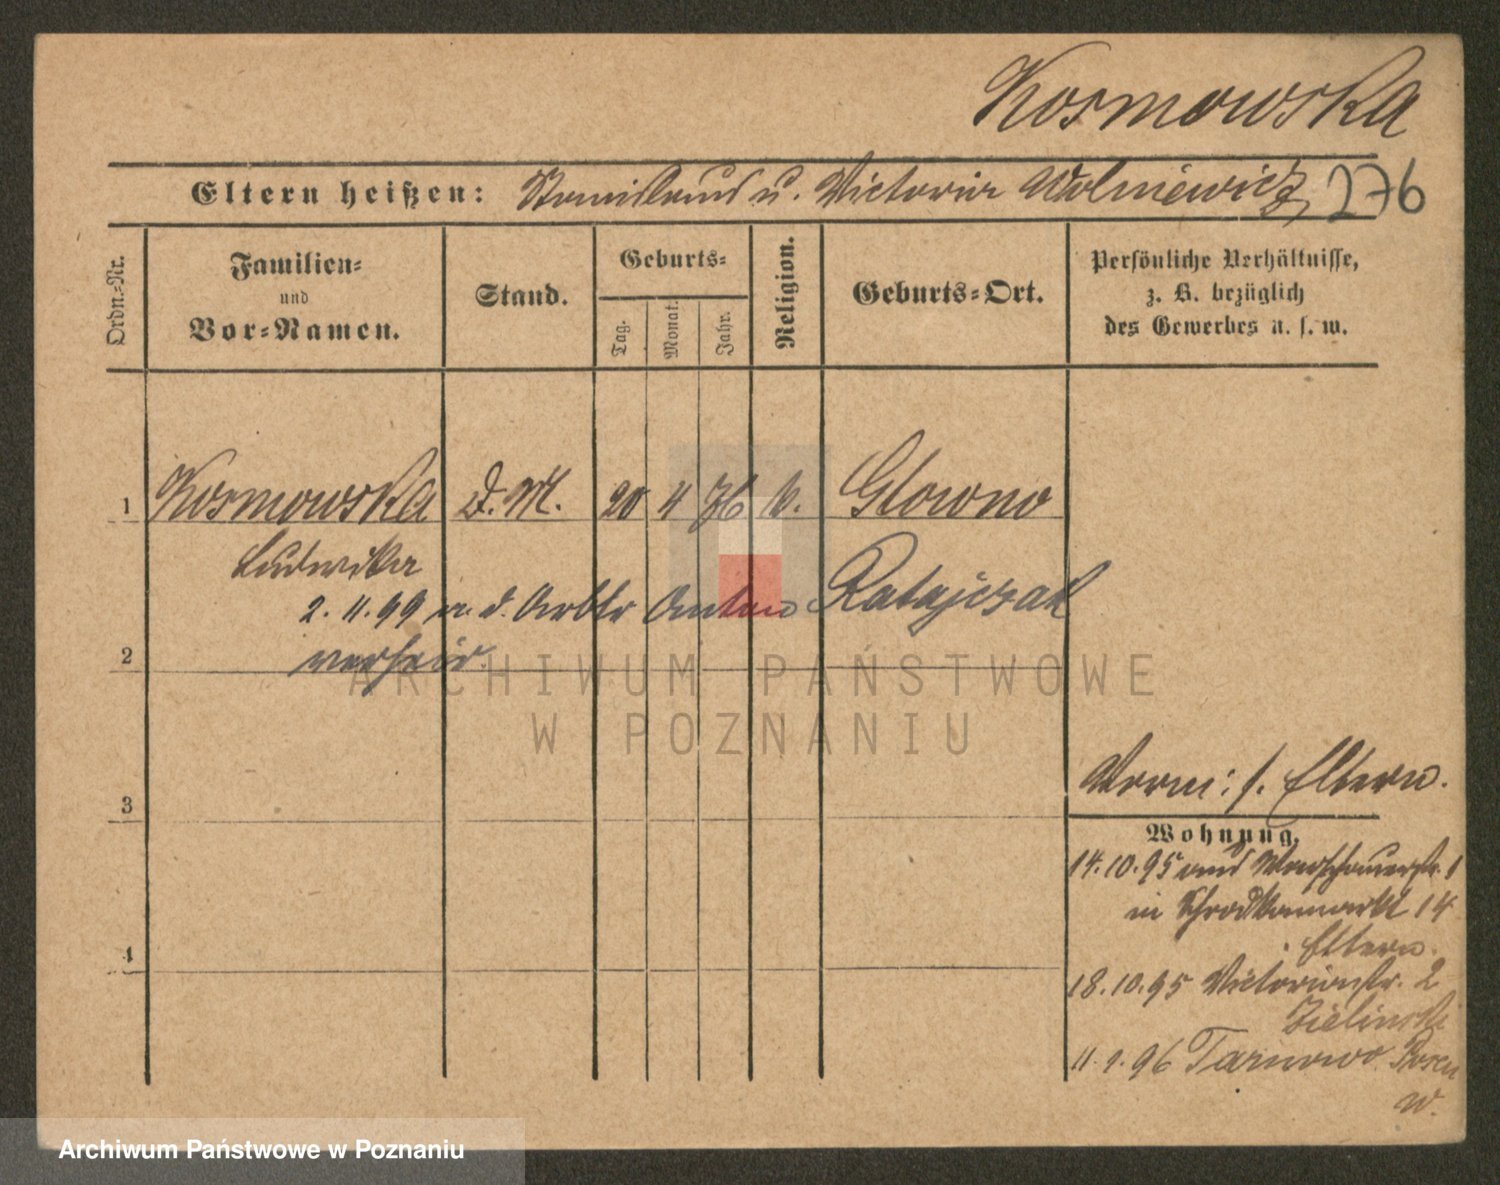 Kosmowska
Eltern heißen: Stanislaus u. Victoria Wolniewicz 276
Ordn.-Nr.
Familien-
und
Vor-Namen.
Stand.
Geburts-
Tag.
Monat.
Jahr.
Religion.
Geburts-Ort.
Persönliche Verhältnisse,
z. B. bezüglich
des Gewerbes u. s. w.
1 Kosmowska D. M. 20 4 k. Glowno
Ludwika
2.11.99 m. d. Arbtr Anton Ratajczak
verheir.
2
3
4
ARCHIWUM PAŃSTWOWE
W POZNANIU
Vorm: s. Eltern.
Wohnung.
14.10.95 aus Warschauerstr. 1
in Schrodkamarkt 14
Eltern.
18.10.95 Victoriastr. 2
Zielinski
11.1.96 Tarnowo Posen
W.
Archiwum Państwowe w Poznaniu